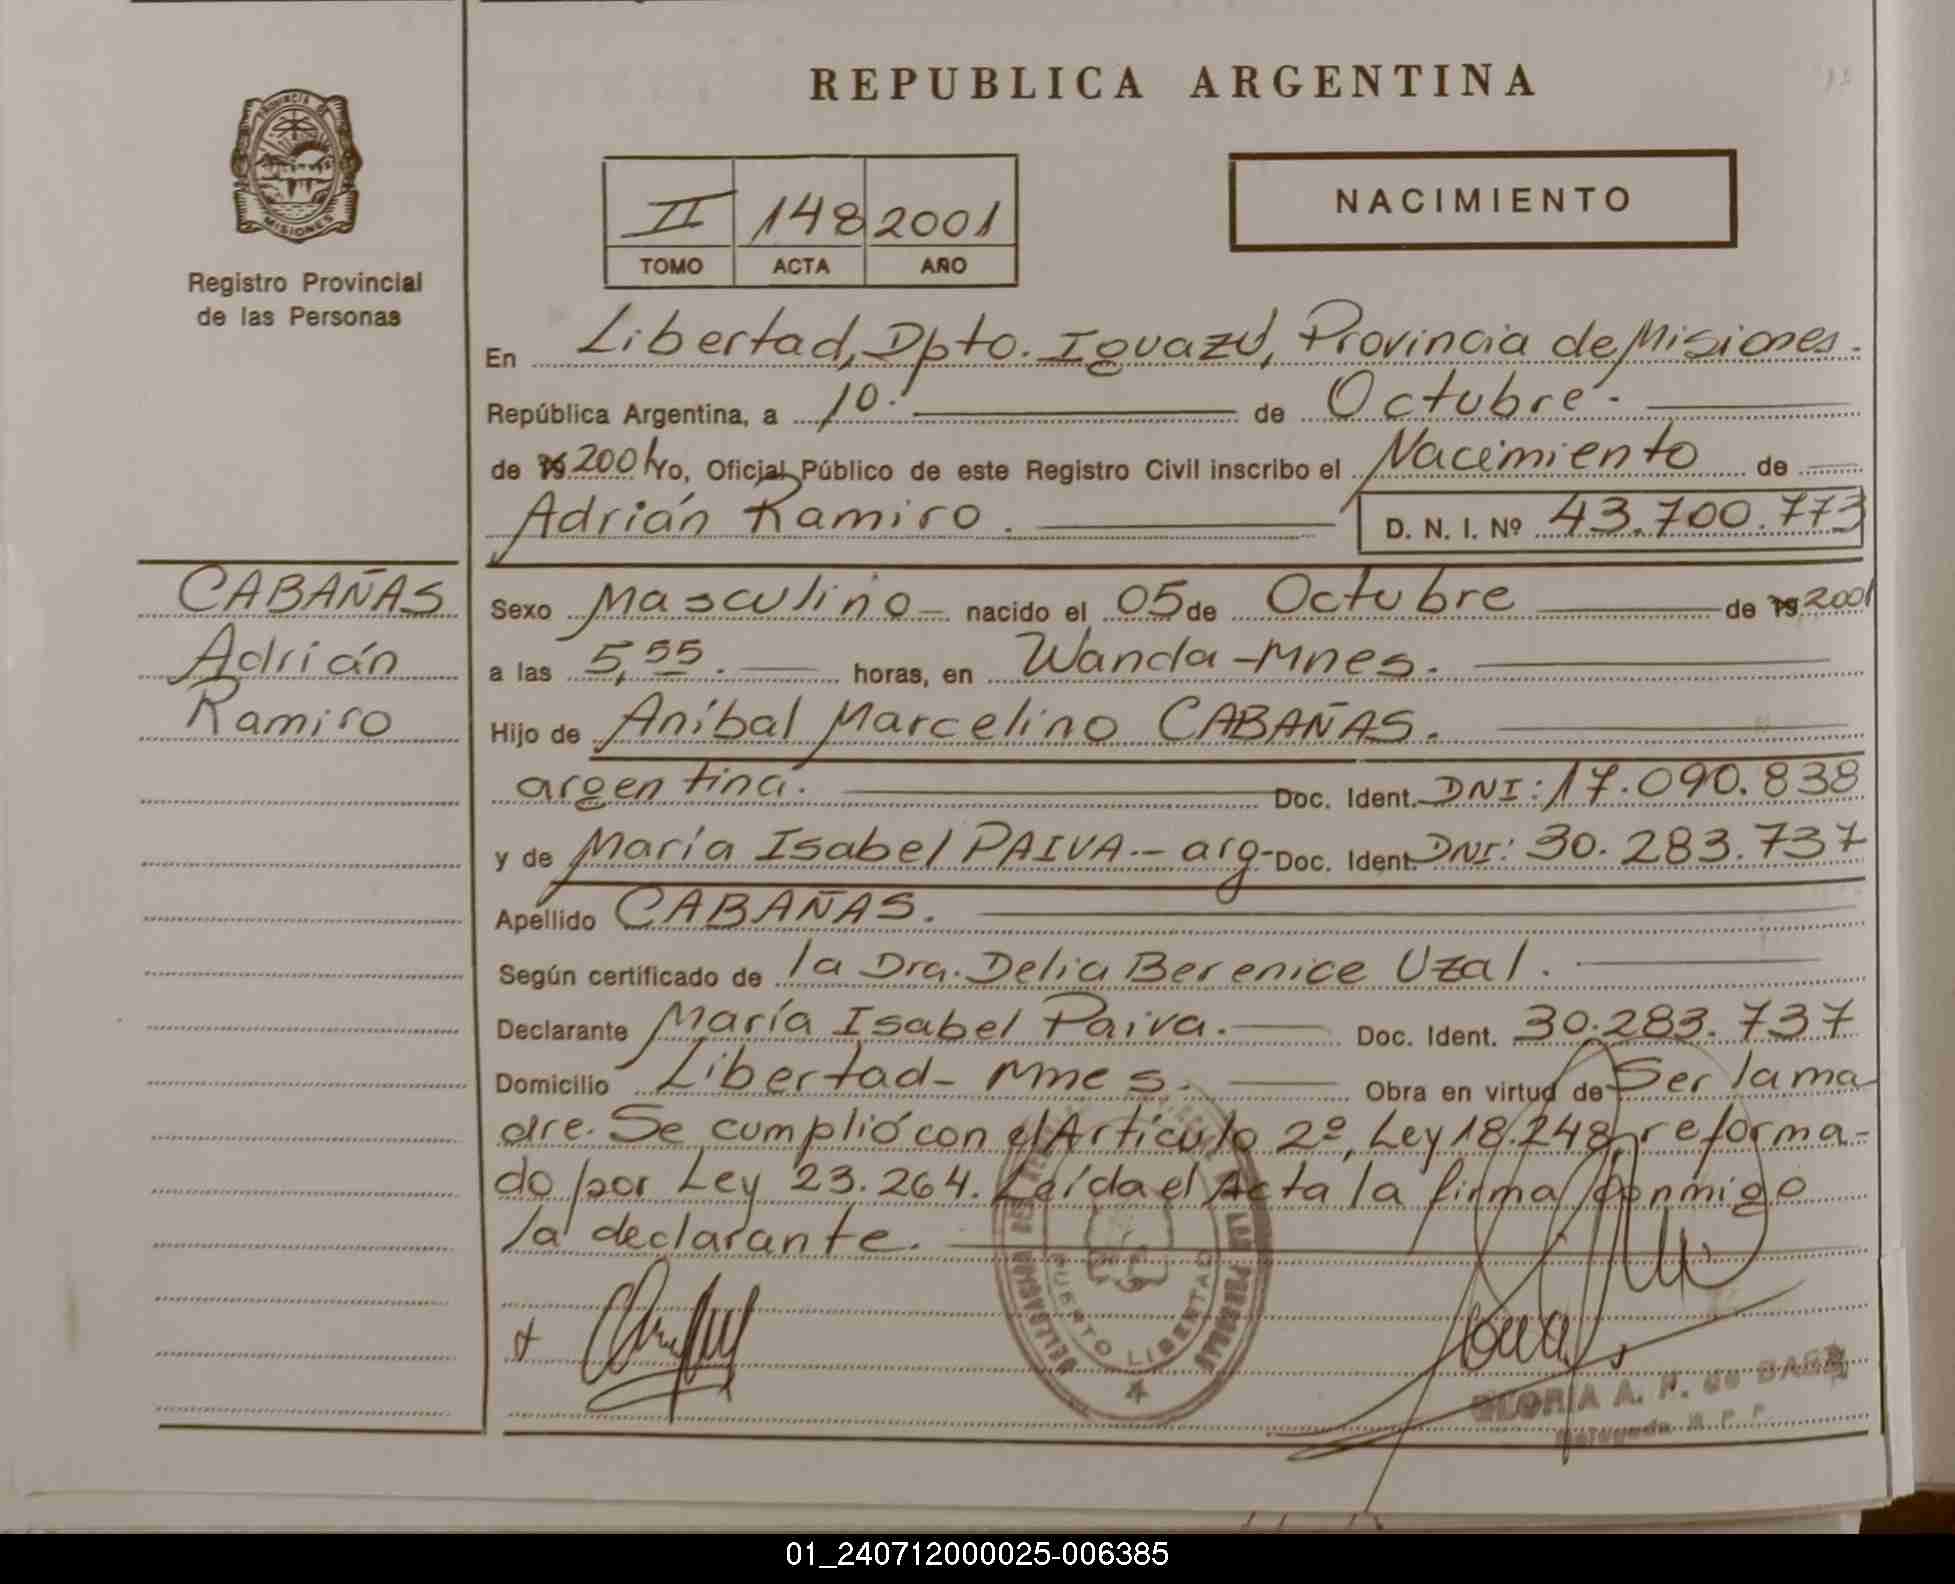 REPUBLICA ARGENTINA
PROVINCIA DE
MISIONES
Registro Provincial
de las Personas
II 148 2001
TOMO ACTA AÑO
NACIMIENTO
En Libertad, Dpto. Iguazú, Provincia de Misiones.
República Argentina, a 10. de Octubre.
de 19 2001 Yo, Oficial Público de este Registro Civil inscribo el Nacimiento de
Adrián Ramiro. D. N. I. Nº 43.700.773
CABAÑAS
Adrián
Ramiro
Sexo Masculino nacido el 05 de Octubre de 19 2001
a las 5,55. horas, en Wanda-Mnes.
Hijo de Aníbal Marcelino CABAÑAS.
argentina. Doc. Ident. DNI: 17.090.838
y de María Isabel PAIVA.- arg- Doc. Ident. DNI: 30.283.737
Apellido CABAÑAS.
Según certificado de la Dra. Delia Berenice Uzal.
Declarante María Isabel Paiva. Doc. Ident. 30.283.737
Domicilio Libertad- Mnes. Obra en virtud de Ser la ma
dre. Se cumplió con el Artículo 2º, Ley 18.248, reforma-
do por Ley 23.264. Leída el Acta la firma conmigo
la declarante.
DELEGACION DEL DE LAS PERSONAS
PUERTO LIBERTAD
GLORIA A. de
01_240712000025-006385